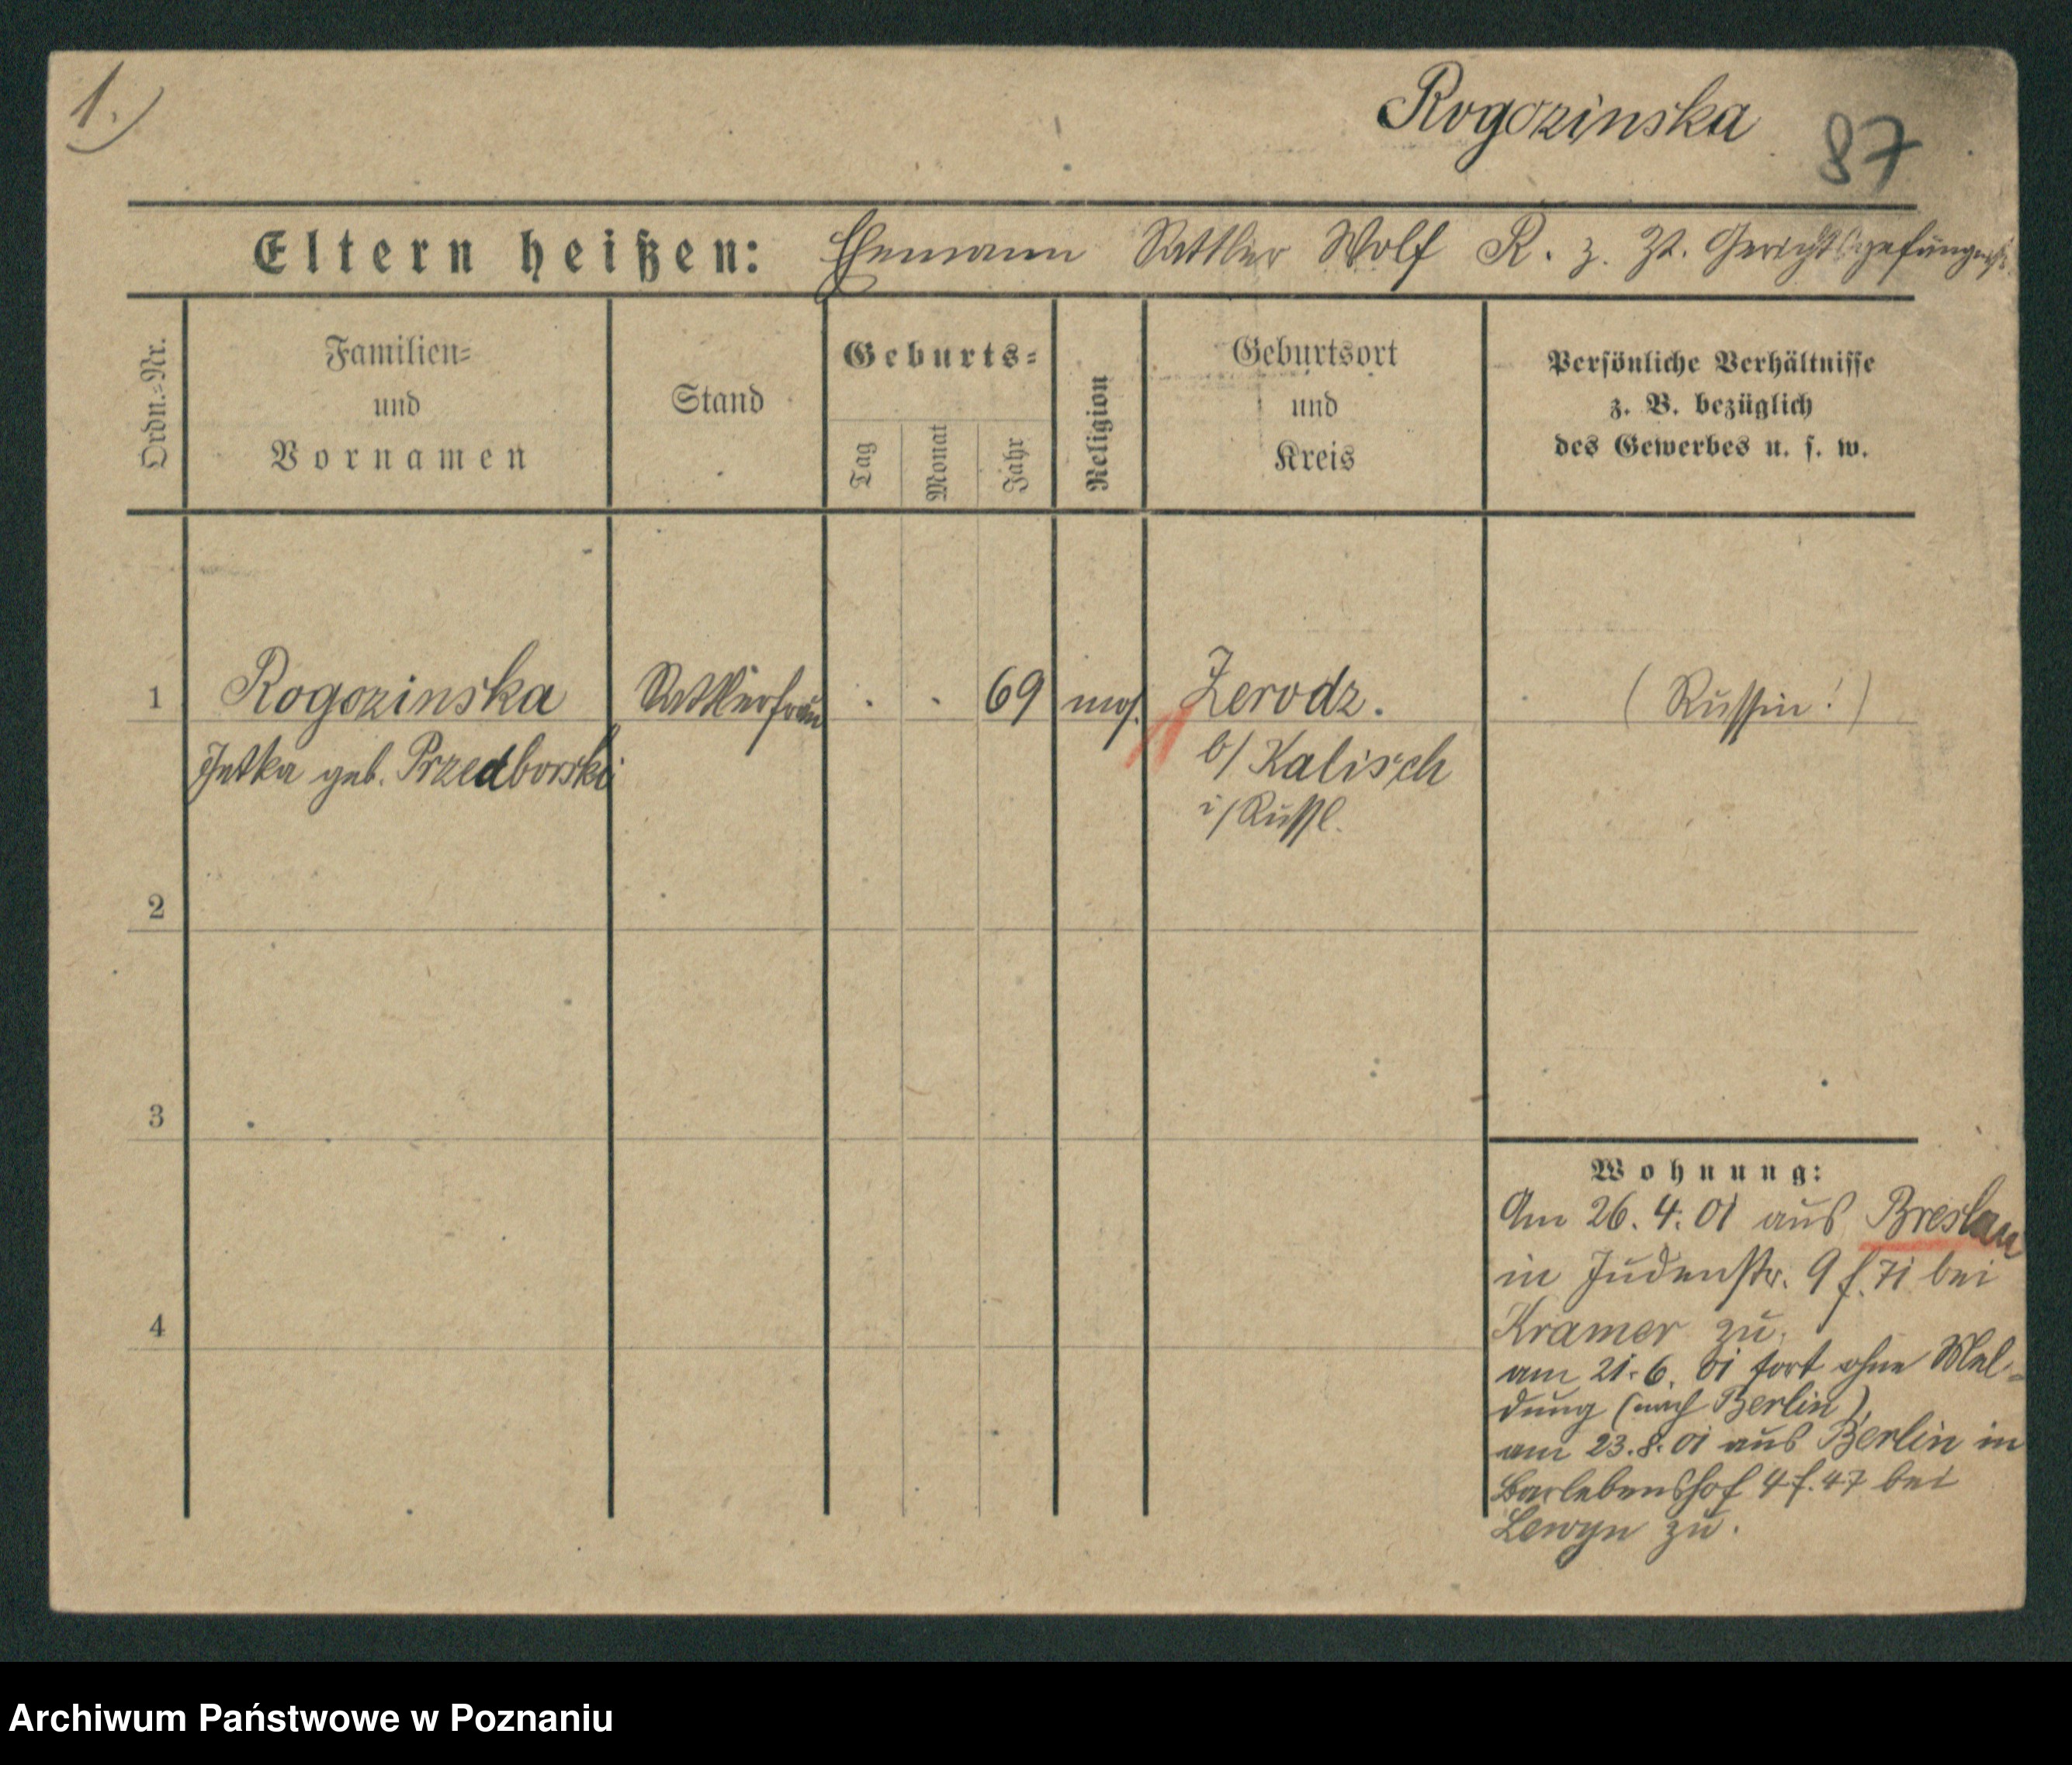 1.)
Rogozinska
87
Eltern heißen: Ehemann Sattler Wolf R. z. Zt. Gerichtsgefängniß
Ordn.-Nr.
Familien-
und
Vornamen
Stand
Geburts-
Tag
Monat
Jahr
Religion
Geburtsort
und
Kreis
Persönliche Verhältnisse
z. B. bezüglich
des Gewerbes u. s. w.
1 Rogozinska Sattlerfrau . . 69 mos. Zerodz. (Russin!)
Jetka geb. Przedborski b/ Kalisch
i/ Russl.
2
3
4
Wohnung:
Am 26. 4. 01 aus Breslau
in Judenstr. 9 f. 71 bei
Kramer zu.
am 21. 6. 01 fort ohne Mel-
dung (nach Berlin),
am 23. 8. 01 aus Berlin in
Barlebenshof 4 f. 47 bei
Lewyn zu.
Archiwum Państwowe w Poznaniu